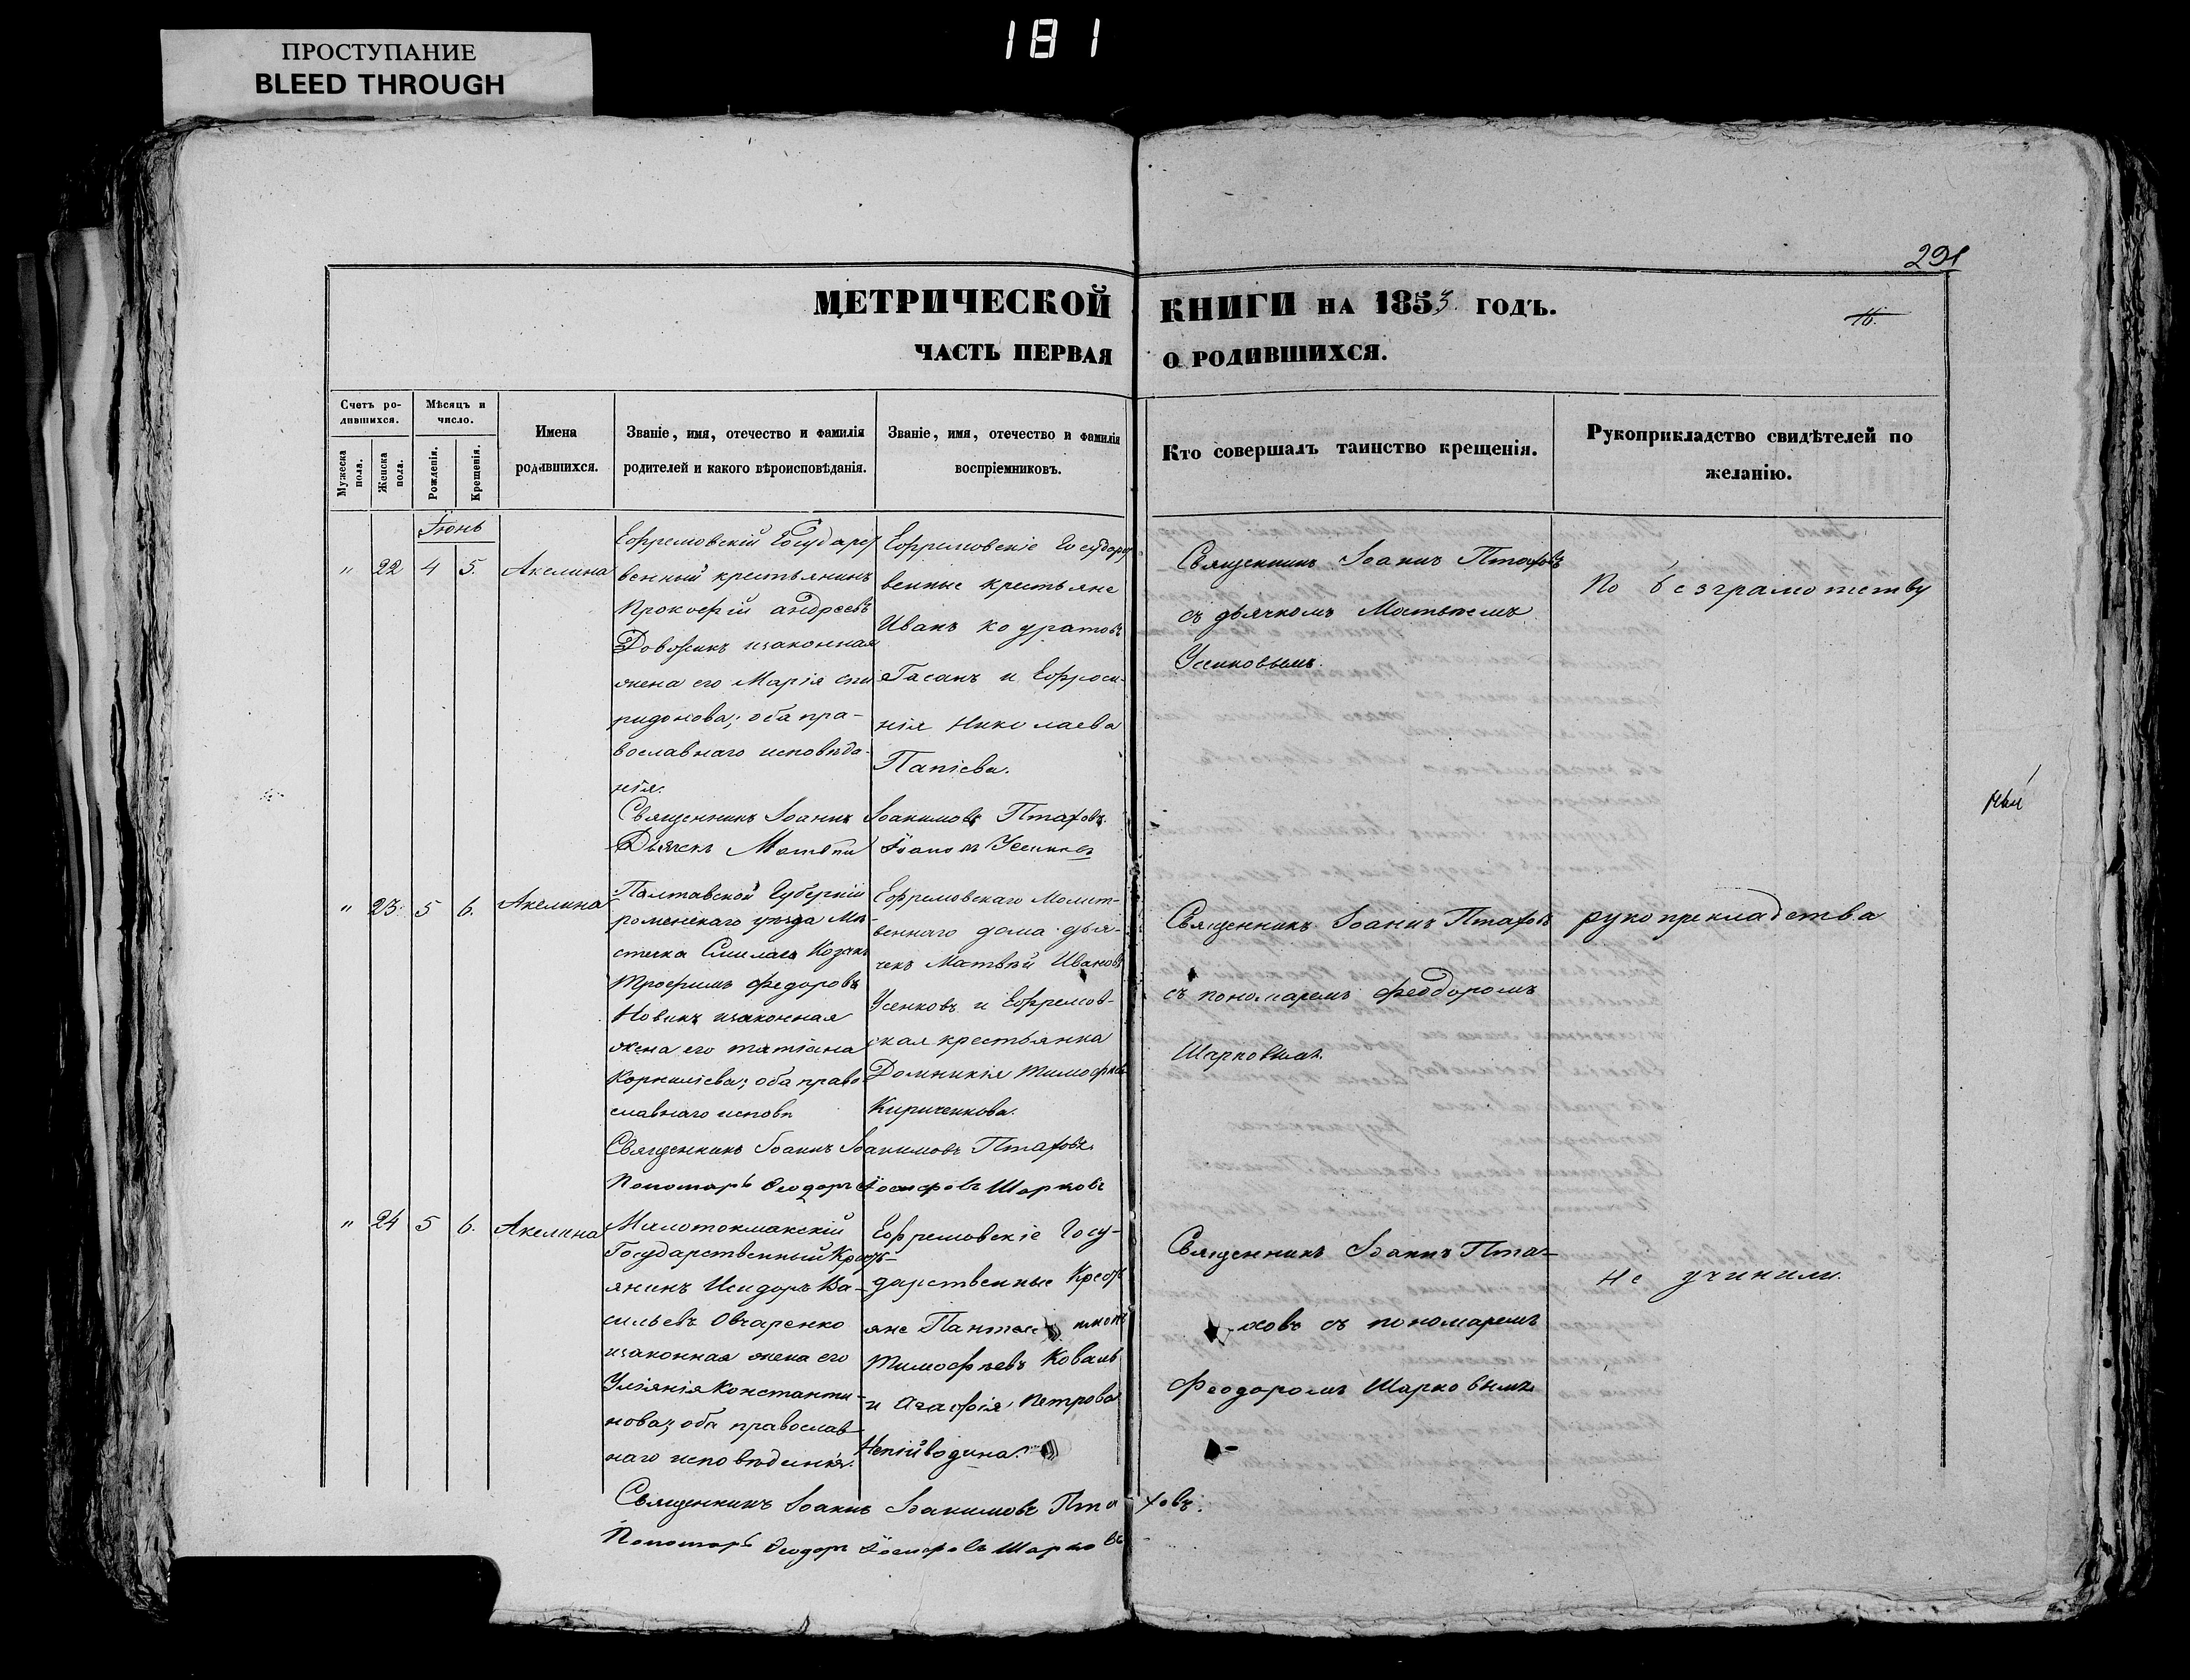 181
ПРОСТУПАНИЕ
BLEED THROUGH
291
МЕТРИЧЕСКОЙ КНИГИ НА 1853 ГОДЪ.
16.
ЧАСТЬ ПЕРВАЯ О РОДИВШИХСЯ.
Счетъ ро-
дившихся.
Мужеска
пола.
Женска
пола.
Мѣсяцъ и
число.
Рожденія.
Крещенія.
Имена
родившихся.
Званіе, имя, отечество и фамилія
родителей и какого вѣроисповѣданія.
Званіе, имя, отечество и фамилія
воспріемниковъ.
Кто совершалъ таинство крещенія.
Рукоприкладство свидѣтелей по
желанію.
Іюнь
" 22 4 5. Акелина
Ефремовскій Государст
венный крестьянинъ
Прокофій андреевъ
Довжикъ изаконная
жена его Марія спи
ридонова; оба пра-
вославнаго исповѣда-
нія.
Ефремовскіе Государст
венные крестьяне
Иванъ кодратовъ
Гасанъ и Ефроси-
нія Николаева
Папіева.
Священникъ Іоаннъ Птаховъ
съ дьячкомъ Матвѣемъ
Усиковымъ.
По безграмотству
Священникъ Іоаннъ Іоакимовъ Птаховъ.
Дьячекъ Матвѣй Іоановъ Усиковъ
" 23 5 6. Акелина
Палтавской Губерніи
роменскаго уѣзда Мѣ
стечка Смилаго Козакъ
Трофимъ федоровъ
Новикъ изаконная
жена его татіана
Корниліева; оба право
славнаго исповѣ
Ефремовскаго Молит-
веннаго дома дья-
чекъ Матвѣй Ивановъ
Усенковъ и Ефремов-
ская крестьянка
Домникія тимофѣев
Кириченкова.
Священникъ Іоаннъ Птаховъ
съ пономаремъ Феодоромъ
Шарковымъ.
рукоприкладства
Священникъ Іоаннъ Іоакимовъ Птаховъ.
Пономарь Ѳеодоръ Іосифовъ Шарковъ
" 24 5 6. Акелина
Малотокмакскій
Государственный Кресть-
янинъ Исидоръ Ва-
сильевъ Овчаренко
изаконная жена его
Уліянія Константи-
нова; оба православ-
наго исповѣданія.
Ефремовскіе Госу-
дарственные Кресть
яне
тимофѣевъ Коваль
и Агафія Петрова
Непійводина.
Священникъ Іоаннъ Пта-
ховъ съ пономаремъ
Феодоромъ Шарковымъ
не учинили.
Священникъ Іоаннъ Іоакимовъ Птаховъ.
Пономарь Ѳеодоръ Іосифовъ Шарковъ